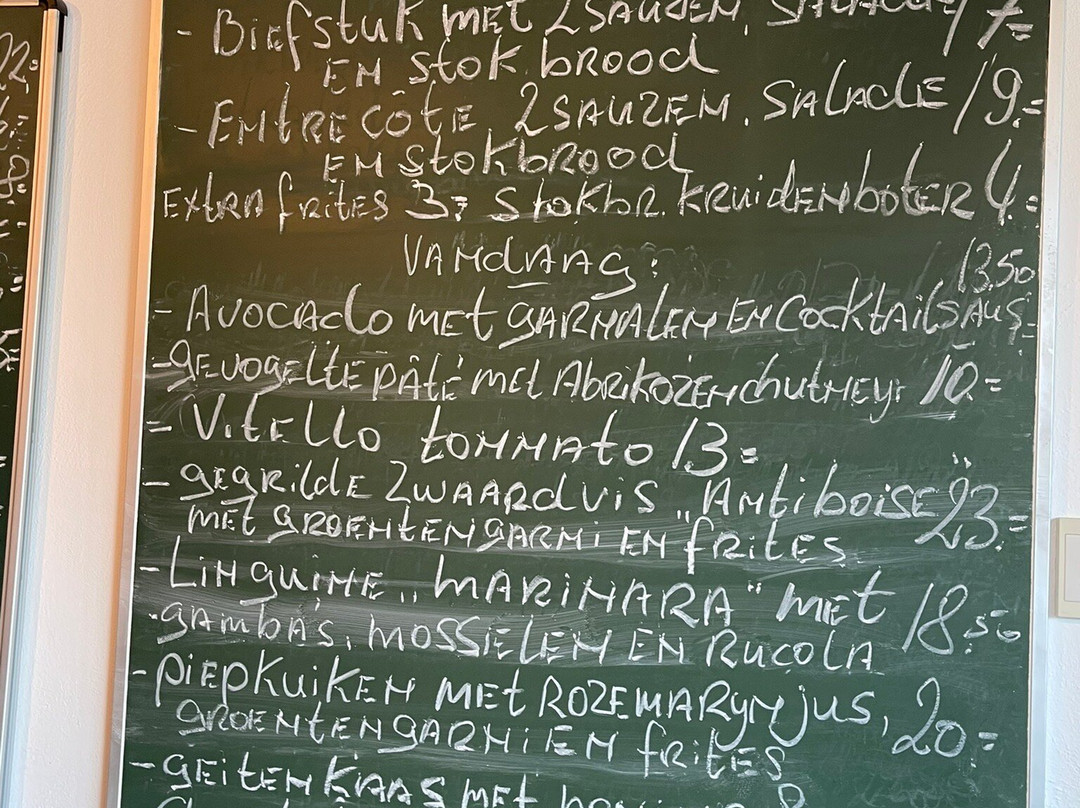 - Biefstuk met 2 sauzen, salade 17=
en stokbrood
- Entrecôte 2 sauzen, salade 19.=
en stokbrood
Extra frites 3= Stokbr. kruidenboter 4.=
Vandaag: 13,50
- Avocado met garnalen en cocktailsaus
- gevogelte pâté met abrikozenchutney: 10.=
= Vitello tonnato 13=
- gegrilde zwaardvis „Antiboise" 23.=
met groentengarni en frites
- Linguine „marinara" met 18.50
gamba's, mosselen en rucola
- piepkuiken met rozemarynjus, 20=
groentengarni en frites
- geitenkaas met